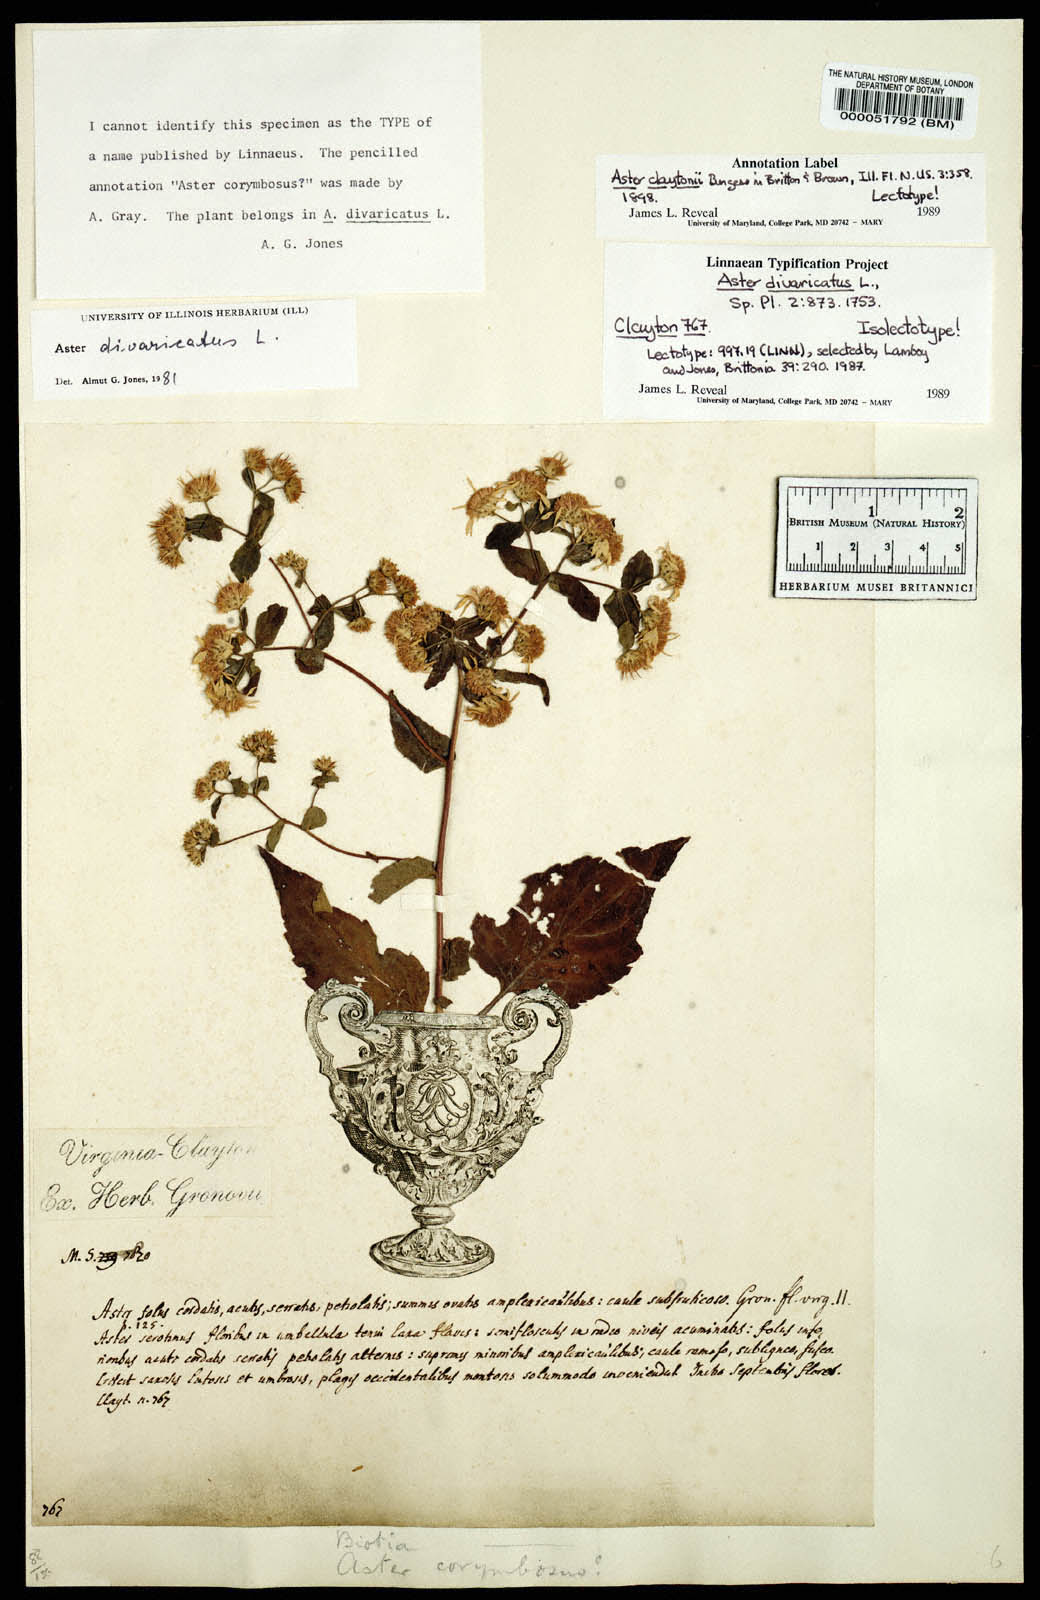 I cannot identify this specimen as the TYPE of
a name published by Linnaeus. The pencilled
annotation "Aster corymbosus?" was made by
A. Gray. The plant belongs in A. divaricatus L.
A. G. Jones
UNIVERSITY OF ILLINOIS HERBARIUM (ILL)
Aster divaricatus L.
Det. Almut G. Jones, 1981
THE NATURAL HISTORY MUSEUM, LONDON
DEPARTMENT OF BOTANY
000051792 (BM)
Annotation Label
Aster claytonii Burgess in Britton & Brown, Ill. Fl. N. US. 3:358.
1898. Lectotype!
James L. Reveal 1989
University of Maryland, College Park, MD 20742 – MARY
Linnaean Typification Project
Aster divaricatus L.,
Sp. Pl. 2:873. 1753.
Clayton 767. Isolectotype!
Lectotype: 997.19 (LINN), selected by Lamboy
and Jones, Brittonia 39:290. 1987.
James L. Reveal 1989
University of Maryland, College Park, MD 20742 – MARY
1 2
BRITISH MUSEUM (NATURAL HISTORY)
1 2 3 4 5
HERBARIUM MUSEI BRITANNICI
Virginia-Clayton
Ex. Herb. Gronovii
M. S.
Aster folus cordatis, acutis, serratis, petiolatis; summis ovatis amplexicaulibus: caule subfruticoso. Gron. fl. virg. II.
p. 125.
Aster serotinus floribus in umbellula tenui laxa flavis: semiflosculis in radeo niveis acuminatis: folus infe,
rioribus acute cordatis serratis petiolatis alternis: supremis minoribus amplexicaulibus, caule ramoso, subligneo, fusco.
saxosis lutosis et umbrosis, plagis occidentalibus montosis solummodo inveniendus Initio Septembris flores.
Clayt. n. 767
767
Biotia
Aster corymbosus?
6